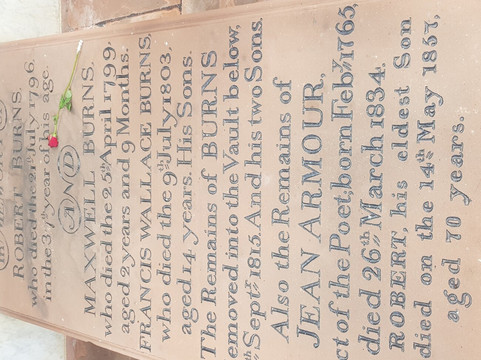 ROBERT BURNS,
who died the 21st July 1796,
in the 37th year of his age.
AND
MAXWELL BURNS,
who died the 25th April 1799,
aged 2 years and 9 Months.
FRANCIS WALLACE BURNS,
who died the 9th July 1803,
aged 14 years. His Sons.
The Remains of BURNS
emoved into the Vault below,
th Septr 1815. And his two Sons.
Also the Remains of
JEAN ARMOUR,
ct of the Poet, born Feby 1765,
died 26th March 1834.
ROBERT, his eldest Son
died on the 14th May 1857,
aged 70 years.